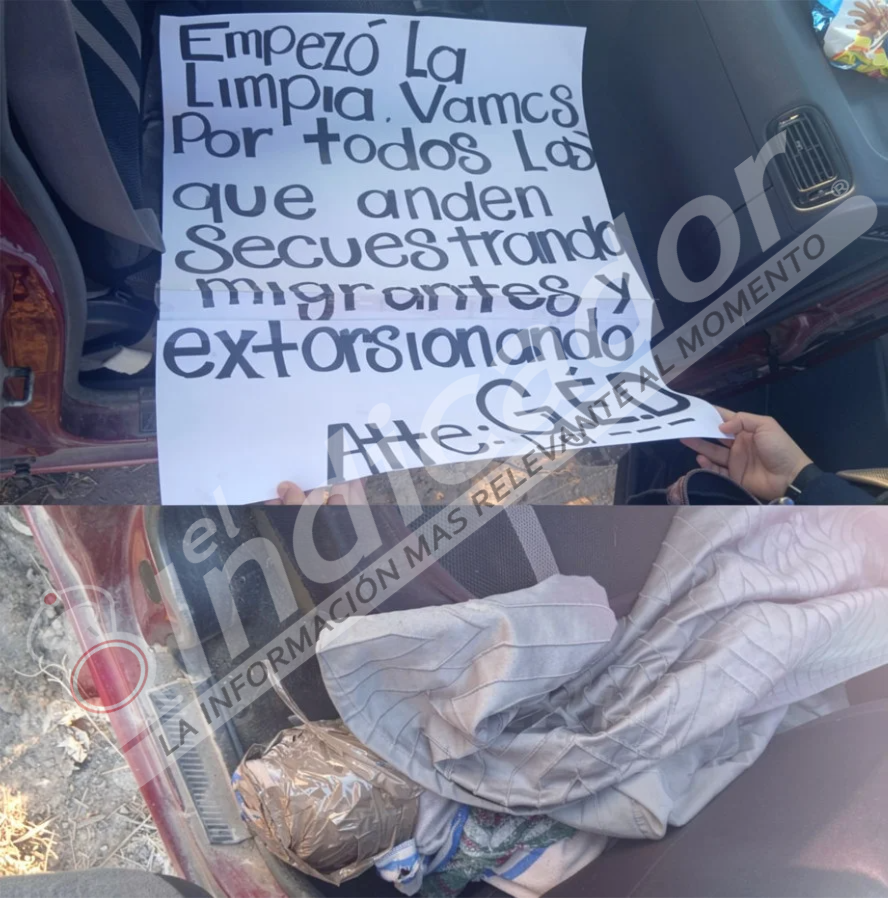 Empezó La
Limpia. Vamos
Por todos Los
que anden
Secuestrando
migrantes y
extorsionando
Atte: G.E.D
el indicador
LA INFORMACIÓN MAS RELEVANTE AL MOMENTO